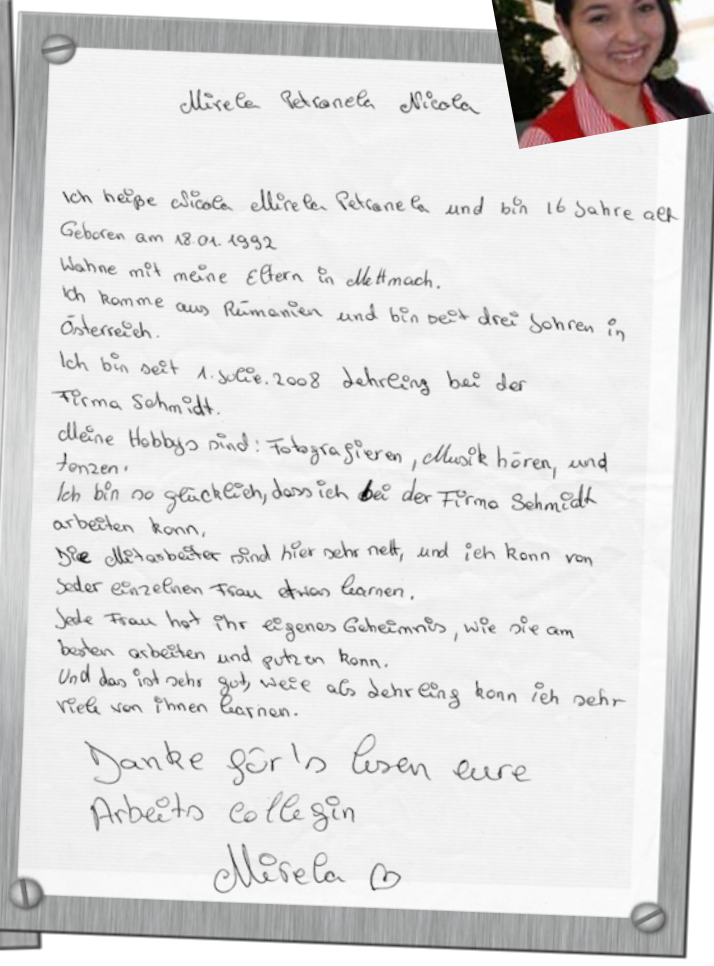 Mirela Petronela Nicola
Ich heiße Nicola Mirela Petronela und bin 16 Jahre alt
Geboren am 18.01.1992
Wohne mit meine Eltern in Mettmach.
Ich komme aus Rümanien und bin seit drei Johren in
Österreich.
Ich bin seit 1. Julie. 2008 Lehrling bei der
Firma Schmidt.
Meine Hobbys sind: Fotografieren, Musik hören, und
tanzen.
Ich bin so glücklich, dass ich bei der Firma Schmidt
arbeiten konn,
Die Mitarbeiter sind hier sehr nett, und ich konn von
Jeder einzelnen Frau etwas learnen.
Jede Frau hat ihr eigenes Geheimnis, wie sie am
besten arbeiten und putzen konn.
Und das ist sehr gut, weie als Lehrling konn ich sehr
viele von ihnen learnen.
Danke für's lesen eure
Arbeits collegin
Mirela ♡